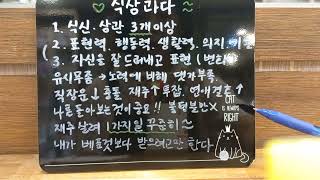 식상과다
1. 식신. 상관 3개이상
2. 표현력. 행동력. 생활력. 의지
3. 자신을 잘 드러내고 표현
유시무종 → 노력에 비해 댓가부족
직장운↓ 충돌 재주가 특징. 연애결혼↑
나를 돌아보는것이 중요!! 불평불만X
재주살려 1가지일 꾸준히~
내가 베푼것보다 받으려고만 한다
CAT
IS ALWAYS
RIGHT